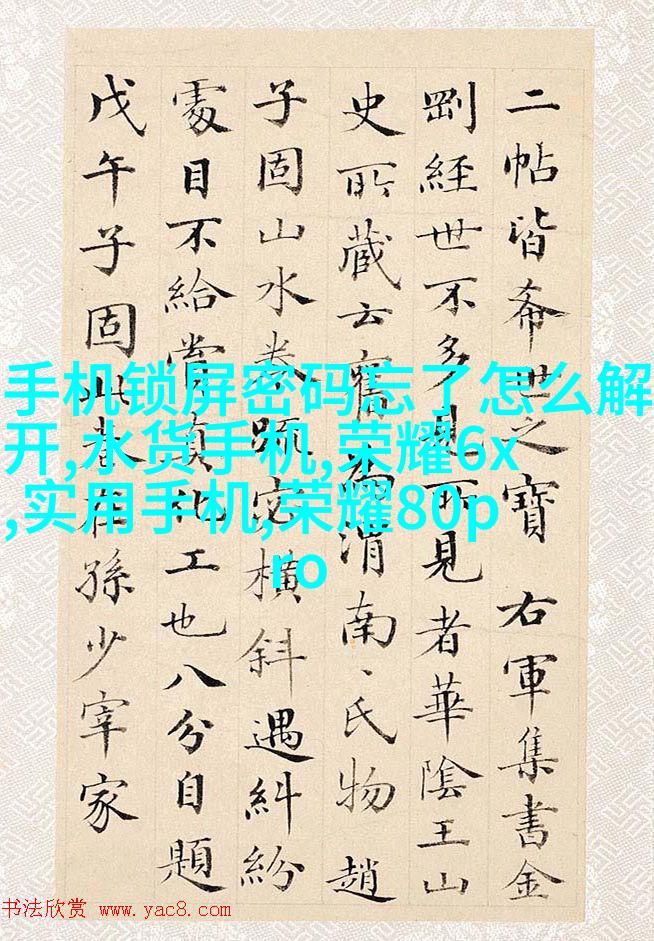 二帖皆希世之寶 右軍集書金
剛經世不多見所見者華陰王山
史所藏云舊為渭南、氏物趙
子固山水卷疏密橫斜遇糾紛
處目不給賞真化工也八分自題
戊午子固此卷在孫少宰家
手机锁屏密码忘了怎么解
开,水货手机,荣耀6x
,实用手机,荣耀80p
ro
书法欣赏 www.yac8.com